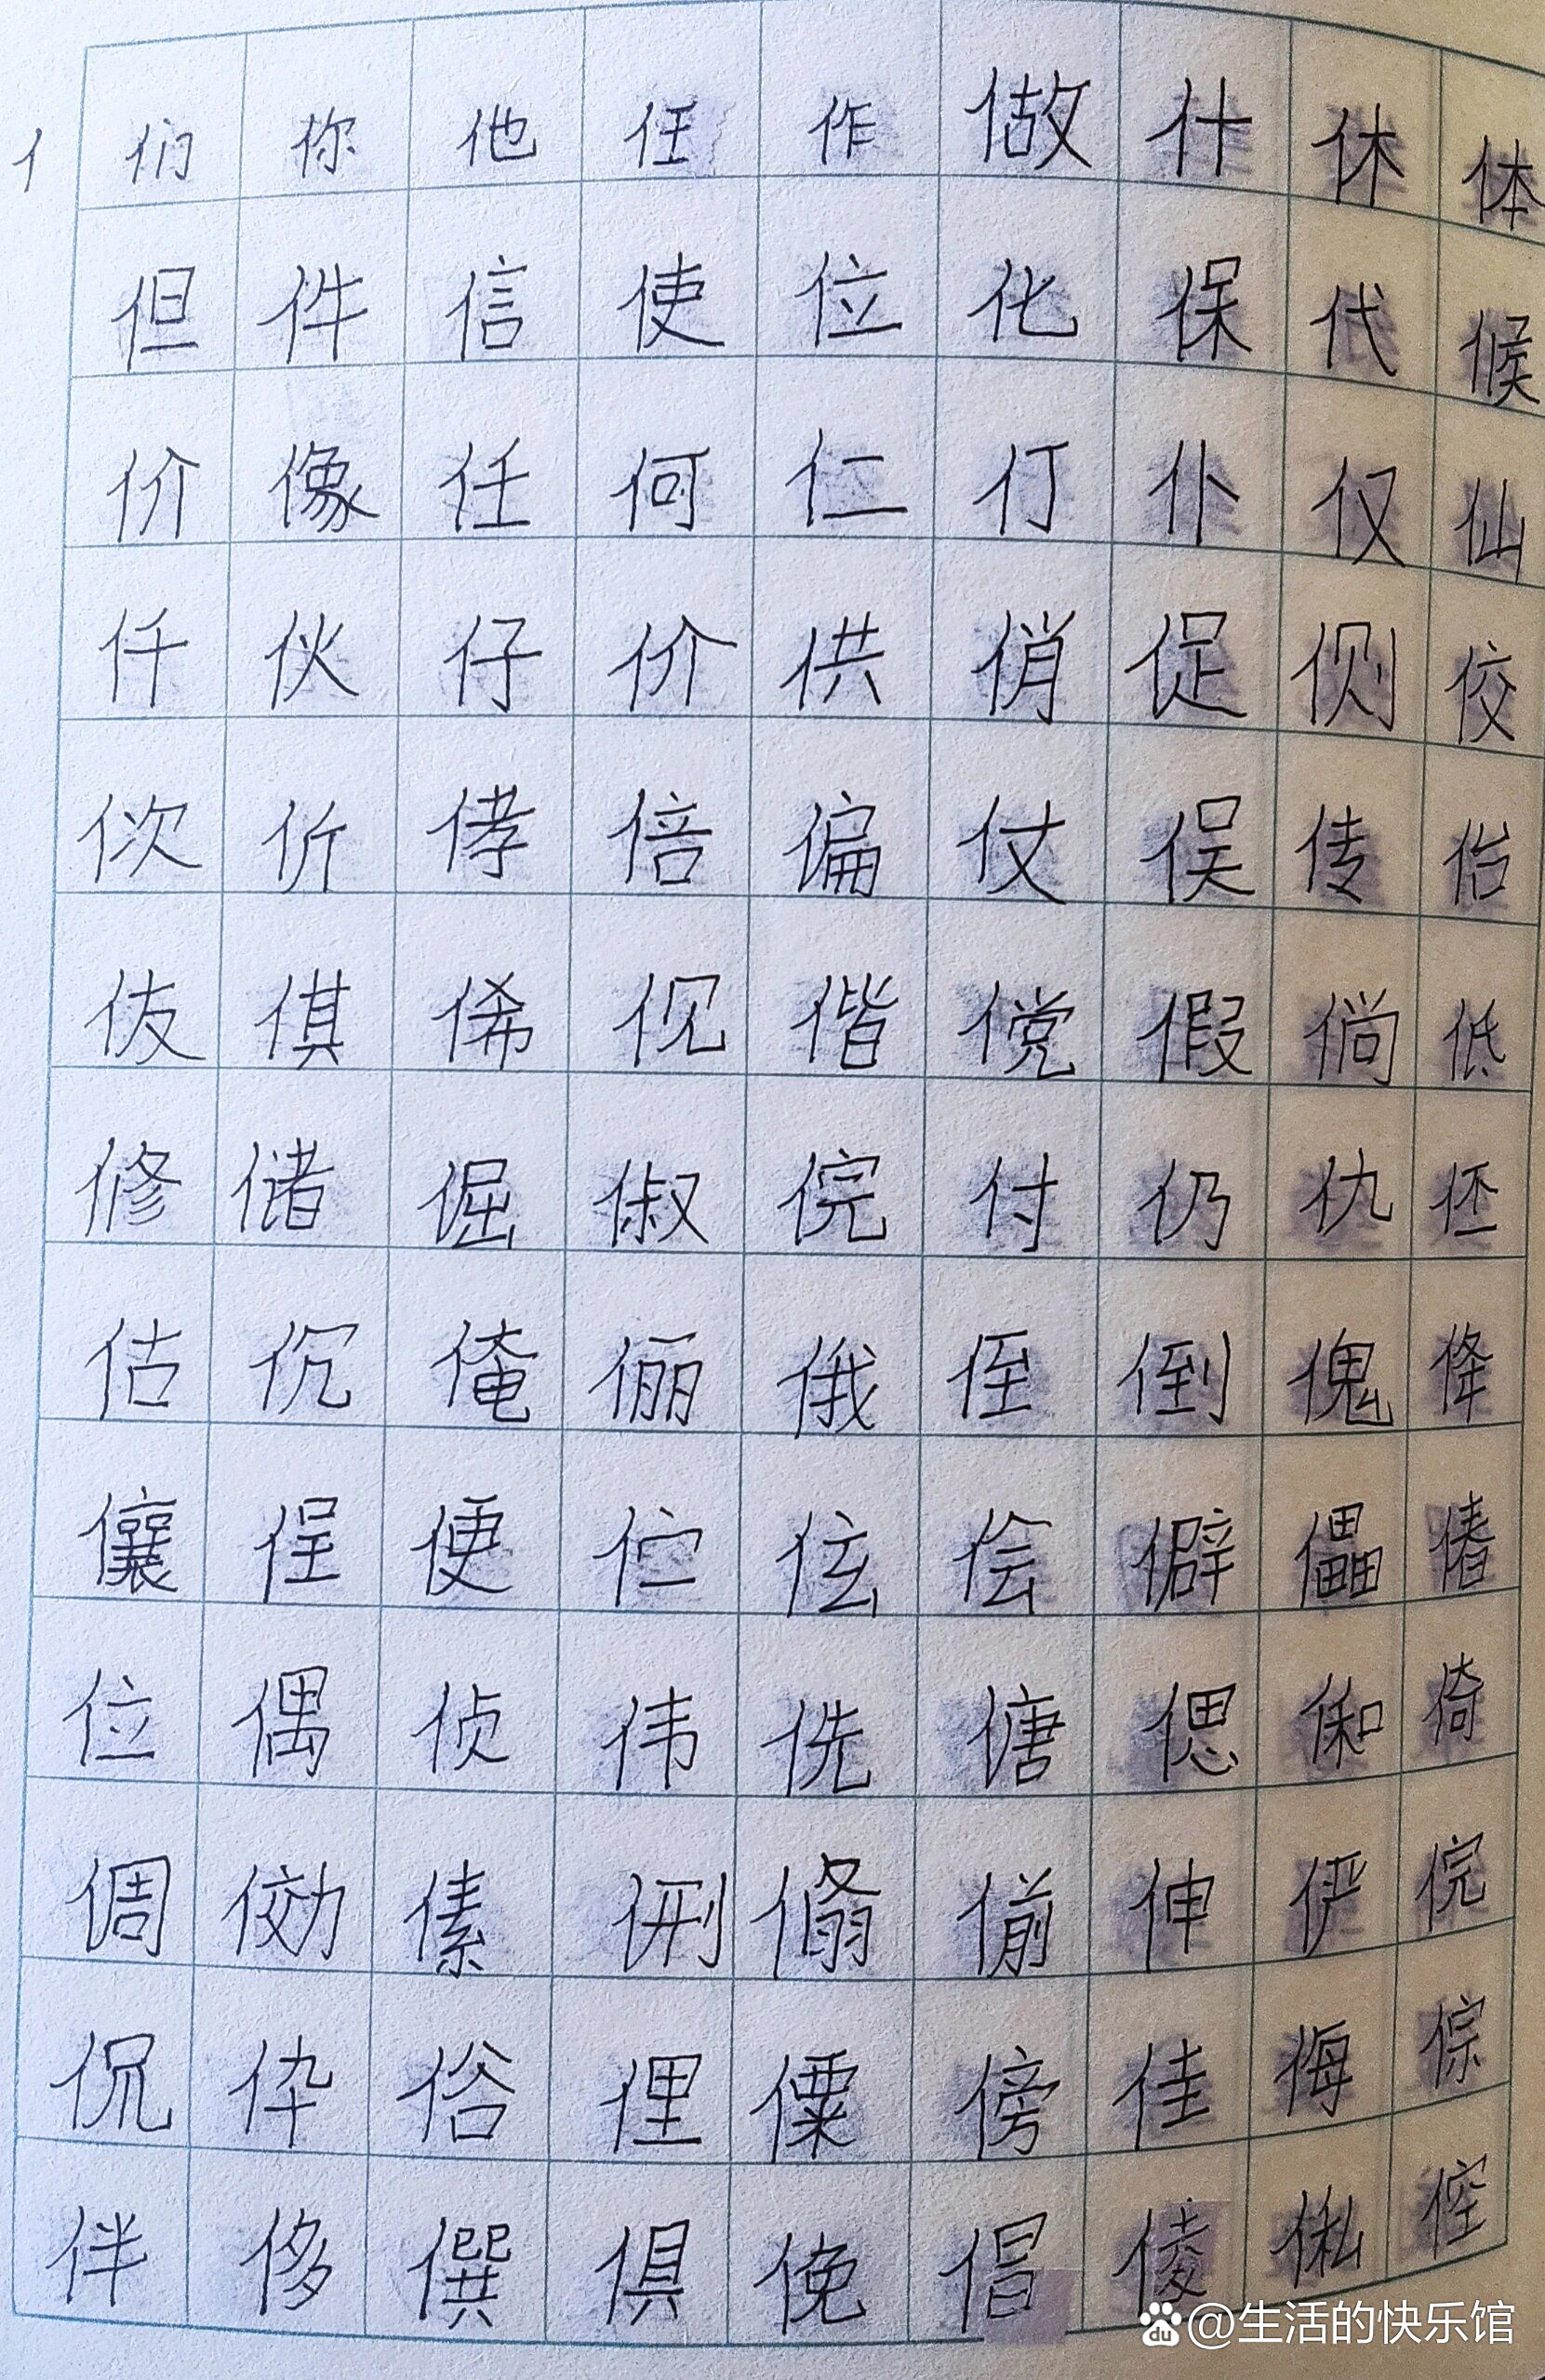 亻 们 你 他 任 作 做 什 休 体
但 件 信 使 位 化 保 代 候
价 像 任 何 仁 仃 仆 仅 仙
仟 伙 仔 价 供 俏 促 侧 佼
佽 伒 倍 偏 仗 俣 传 佁
伎 倛 俙 伣 偕 傥 假 倘 低
修 储 倔 俶 俒 付 仍 仇 伾
估 伔 俺 俪 俄 侄 倒 傀 佭
儴 侱 便 伫 伭 侩 僻 儡 偆
位 偶 侦 伟 侁 傏 偲 俰 倚
倜 傚 傃 侀 傓 偂 伸 俨 俒
侃 伜 俗 俚 傈 傍 佳 侮 倧
伴 侈 僎 俱 俛 倡 倰 俬 倥
@生活的快乐馆